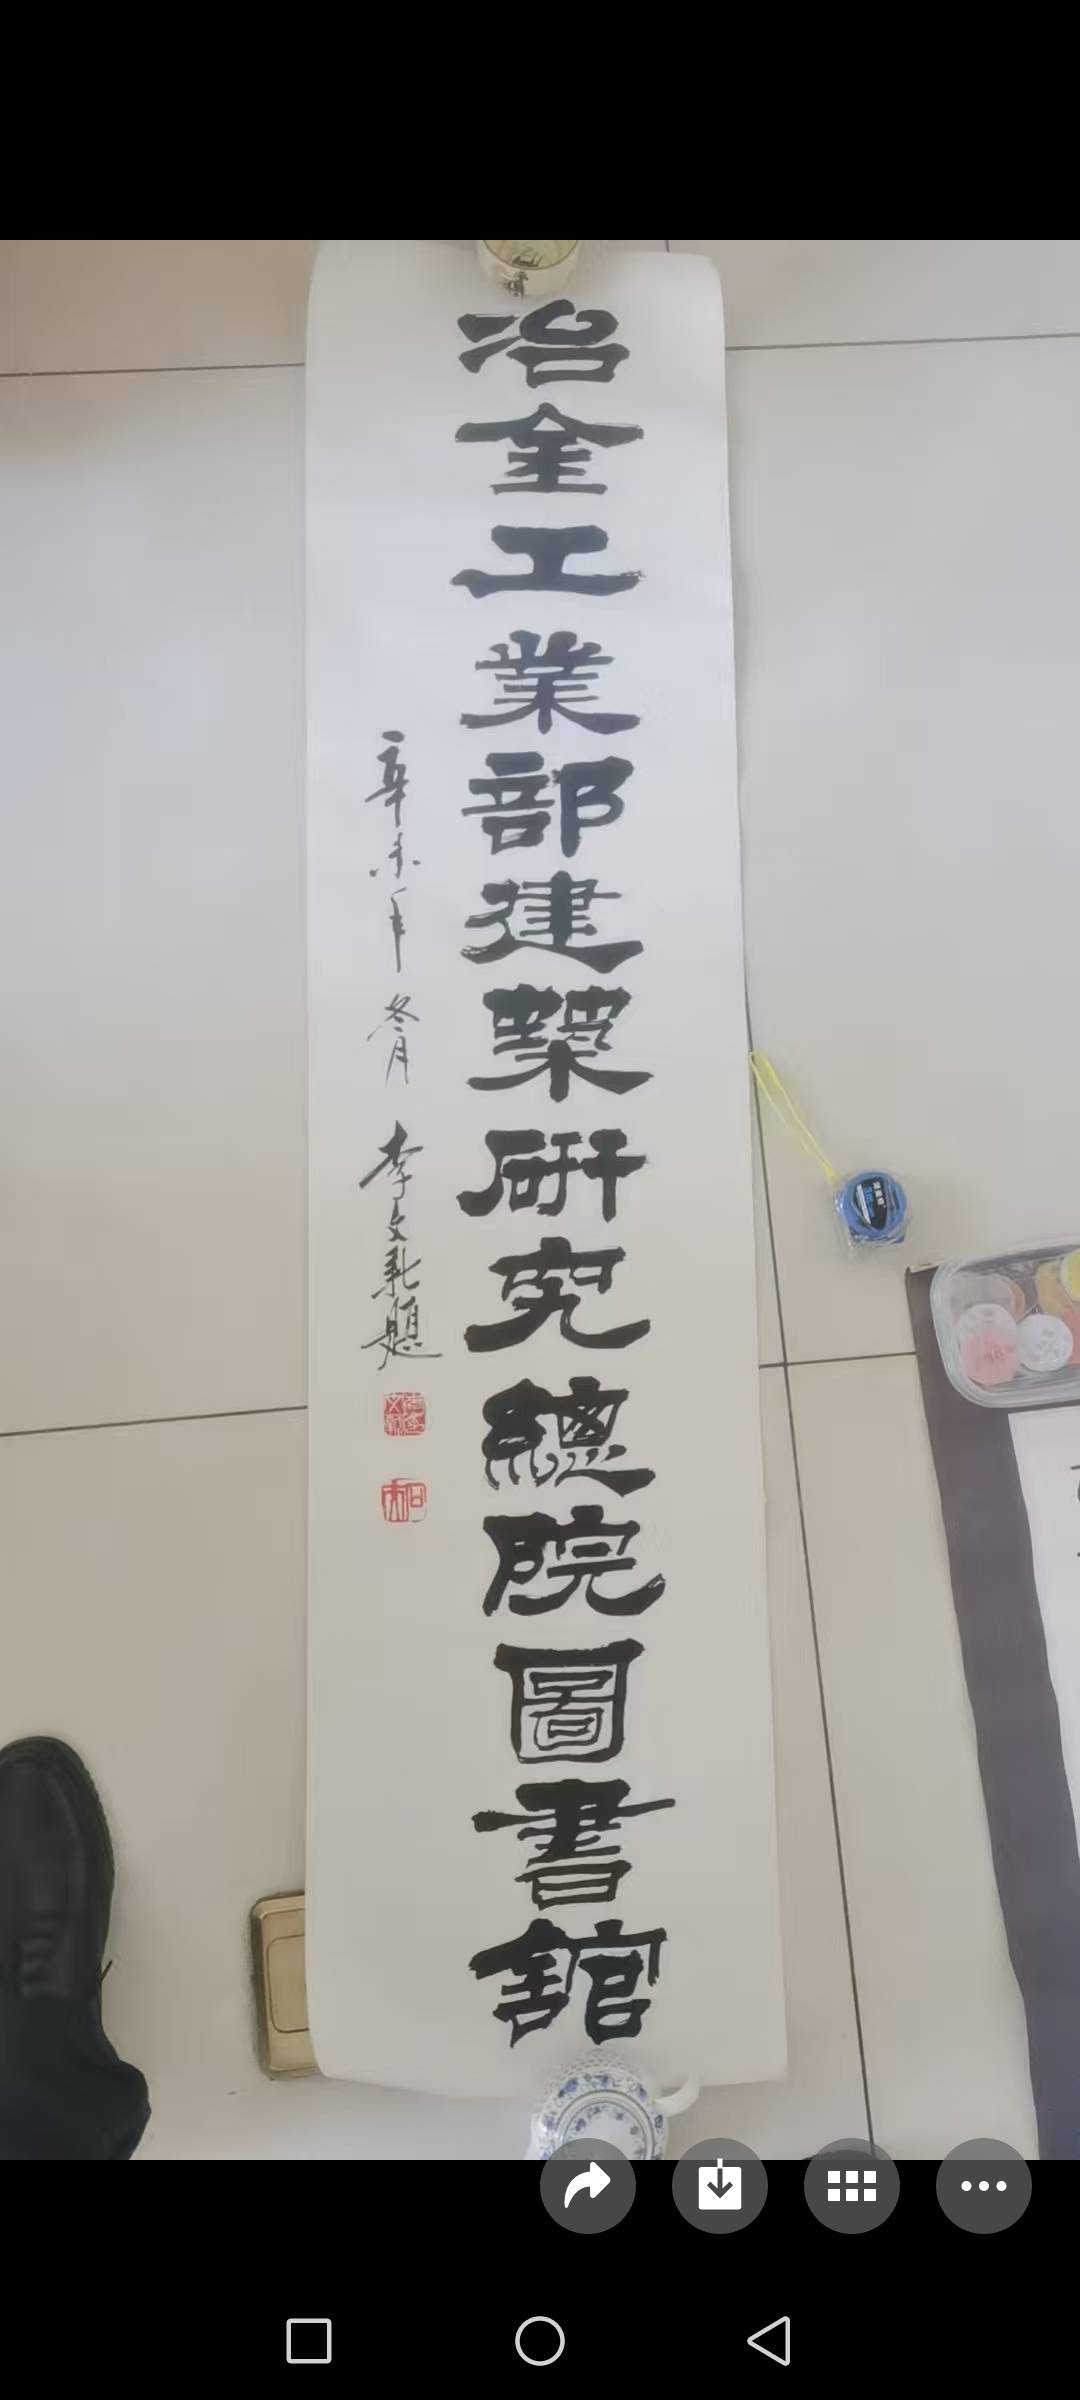 冶金工業部建築研究總院圖書館
辛未年冬月李文新題